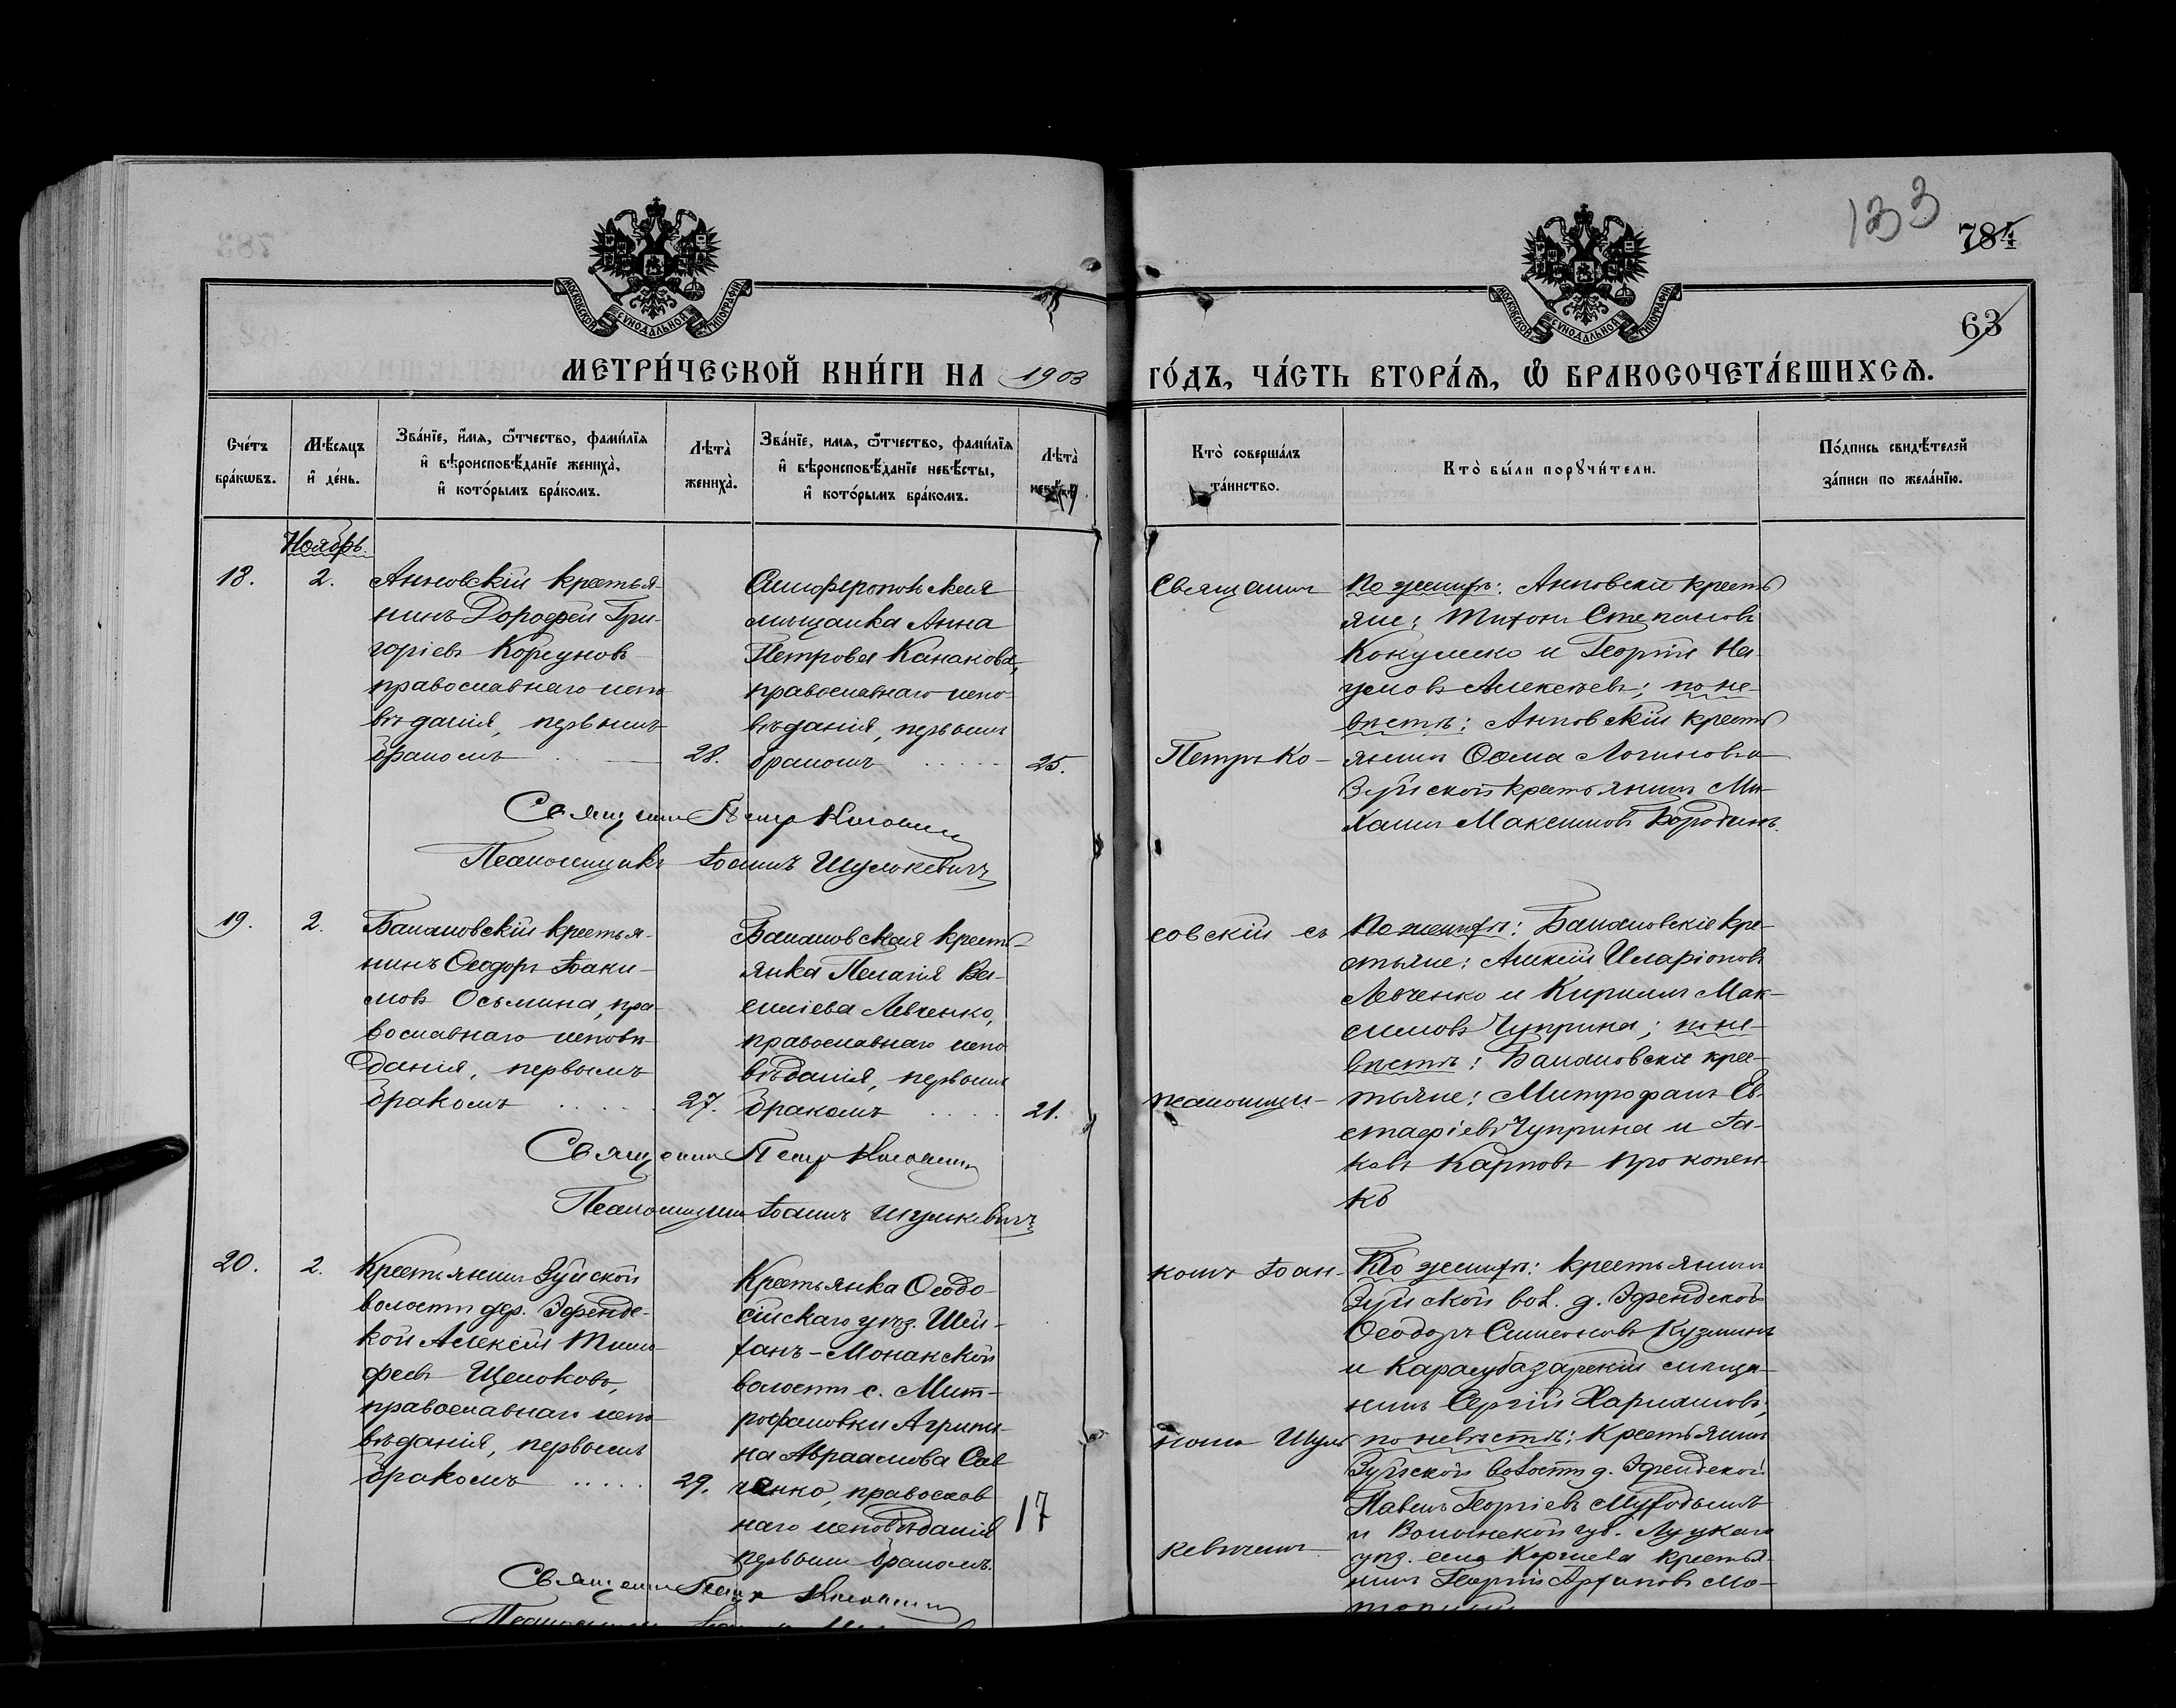 133
784
63
МОСКОВСКОЙ СѴНОДАЛЬНОЙ ТИПОГРАФІИ
МОСКОВСКОЙ СѴНОДАЛЬНОЙ ТИПОГРАФІИ
МЕТРИ́ЧЕСКОЙ КНИ́ГИ НА 1903 ГО́ДЪ, ЧА́СТЬ ВТОРА́Ѧ, Ѽ БРАКОСОЧЕТА́ВШИХСѦ.
Сче́тъ
бра́кѡвъ.
Мѣ́сяцъ
и҆ де́нь.
Зва́нїе, и҆́мѧ, ѻ҆́тчество, фами́лїѧ
и҆ вѣроисповѣ́данїе жениха̀,
и҆ кото́рымъ бра́комъ.
Лѣта̀
жениха̀.
Зва́нїе, имѧ, ѻ҆́тчество, фами́лїѧ
и҆ вѣроисповѣ́данїе невѣ́сты,
и҆ кото́рымъ бра́комъ.
Лѣта̀
невѣ́сты
Кто̀ соверша́лъ
та́инство.
Кто̀ бы́ли порꙋчи́тели.
По́дпись свидѣ́телей
за́писи по жела́нїю.
Ноябрь.
18.
2.
Анновскій крестья-
нинъ Дорофей Гри-
горіевъ Корсуновъ
православнаго испо
вѣданія, первымъ
бракомъ
28.
Симферопольская
мѣщанка Анна
Петрова Канакова,
православнаго испо-
вѣданія, первымъ
бракомъ
25.
Священник
Петръ Ко-
По женихѣ: Анновскіе кресть
яне: Тихонъ Степановъ
и Георгій На-
умовъ Алексѣевъ; по не-
вѣстѣ: Анновскій кресть
янинъ Ѳома Логиновъ и
Зуйской крестьянинъ Ми-
хаилъ Максимовъ Бородинъ.
Священник Петр
Псаломщикъ Іоаннъ Шулькевичъ
19.
2.
Балановскій крестья-
нинъ Ѳеодоръ Іоаки-
мовъ Осьмина, пра-
вославнаго исповѣ-
данія, первымъ
бракомъ
27.
Балановская кресть-
янка Пелагія Ва-
силіева Левченко,
православнаго испо
вѣданія, первымъ
бракомъ
21.
совскій съ
псаломщи-
По женихѣ: Балановскіе кре-
стьяне: Алексій Иларіоновъ
Левченко и Кириллъ Мак-
симовъ Чуприна; по не-
вѣстѣ: Балановскіе крес-
тьяне: Митрофанъ Ев-
стафіевъ Чуприна и Іа-
ковъ Карповъ Прокопен-
ко
Священник Петр
Псаломщикъ Іоаннъ Шулькевичъ
20.
2.
Крестьянинъ Зуйской
волости дер. Эфенде-
кой Алексій Тимо-
феевъ Щелоковъ,
православнаго испо-
вѣданія, первымъ
бракомъ
29.
Крестьянка Ѳеодо-
сійскаго уѣзд. Шей-
ханъ-Монакской
волости с. Мит-
рофановки Агрипи-
на Авраамова Сав
ченко, православ
наго исповѣданія
первымъ бракомъ.
17
комъ Іоан-
номъ Шуль
кевичемъ
По женихѣ: крестьянинъ
Зуйской вол. д. Эфендекой
Ѳеодоръ Симеоновъ Кузминъ
и Карасубазарскій мѣща-
нинъ Сергій Харламовъ;
по невѣстѣ: Крестьянинъ
Зуйской волости д. Эфендекой
Павелъ Георгіевъ
и Волынской губ. Луцкаго
уѣзд. села крестья-
нинъ Георгій Архиповъ Мо-
Священник Петр
Псаломщикъ